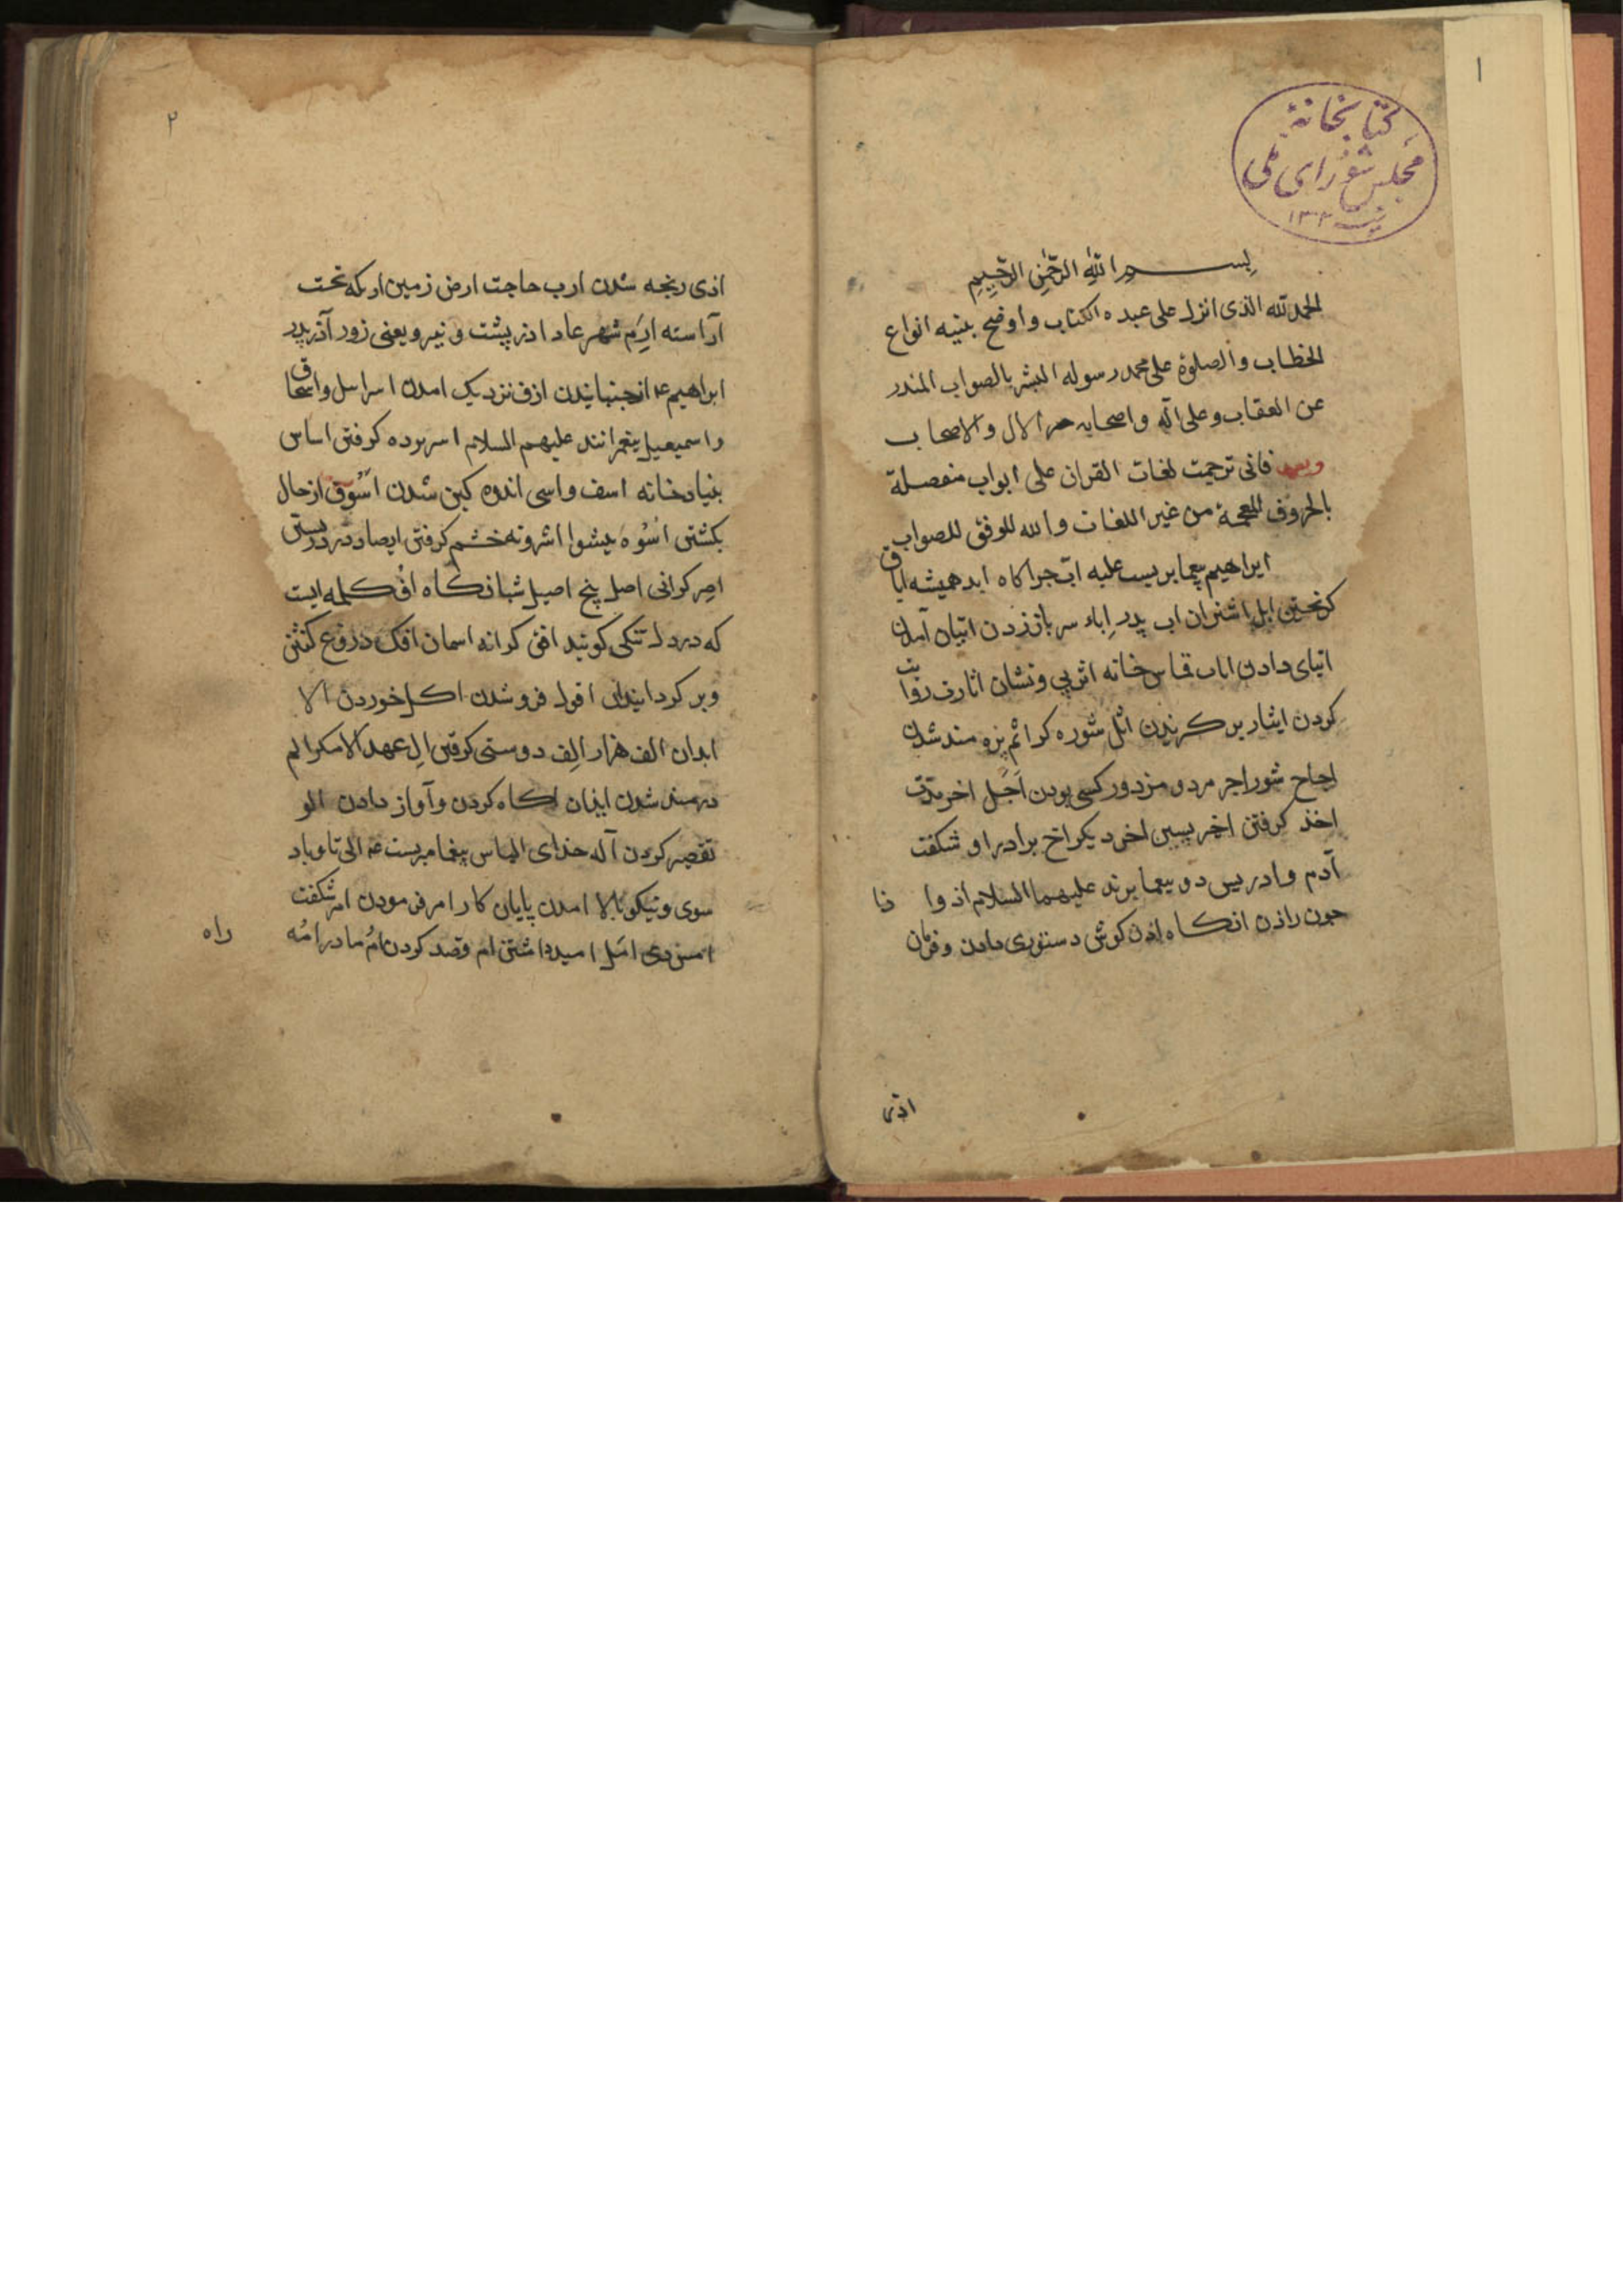 ۱
کتابخانهٔ
مجلس شورای ملی
بسم الله الرحمن الرحیم
الحمد لله الذی انزل علی عبده الکتاب واوضح بنیه انواع
الخطاب والصلوة علی محمد رسوله المبشر بالصواب المنذر
عن العقاب وعلی آله واصحابه الال والاصحاب
وبعد فانی ترجمت لغات القران علی ابواب منفصلة
بالحروف المعجمة من غیر اللغات والله الموفق للصواب
ابراهیم پیغامبریست علیه ابّ چراکاه ابد همیشه اباق
کریختن ابل اشتران اب پدر اِباء سر باززدن اتیان آمدن
ایتای دادن اثاث قماس خانه اثر پی ونشان اثارت روایت
کردن ایثار برکزیدن اثل شوره کز اثم بزه مند شدن
اجاج شور اجر مزد ومزدور کسی بودن اَجَل اخر مدّت
اخذ کرفتن اخر پسین اخر دیکر اخ برادر او شکفت
آدم وادریس دو پیغامبرند علیهما السلام اذ وا ذا
چون را ذن انکاه اذن کوش دستوری دادن وفرمان
اذی
۲
اذی رنجه شدن ارب حاجت ارض زمین اریکه تخت
آراسته اِرَم شهر عاد ازر پشت ونیرو یعنی زور آذر پدر
ابراهیم ع از جنبانیدن ازف نزدیک امدن اسرایل واسحاق
واسمیعیل پیغمرانند علیهم السلام اسر برده کرفتن اساس
بنیاد خانه اسف واسی اندوه کین شدن از حال
بکشتن اُسْوَه پیشوا خشم کرفتن ایصاد در دربستن
اصر کرانی اصل بیخ اصیل شبانکاه اُف کلمه ایت
که در دل تنکی کویند افق کرانه اسمان افک دروغ کفتن
وبر کردانیدن افول فرو شدن اکل خوردن الا
الف هزار اِلف دوستی کرفتن اِل عهد الم
دردمند شدن ایذان اکاه کردن وآواز دادن الو
تقصیر کردن آله خدای الیاس پیغامبریست ع الی تا وباد
سوی ونیکو بالا امدن پایان کار امر فرمودن امر شکفت
اَمَل امید داشتن ام قصد کردن اُم مادر امّه
راه